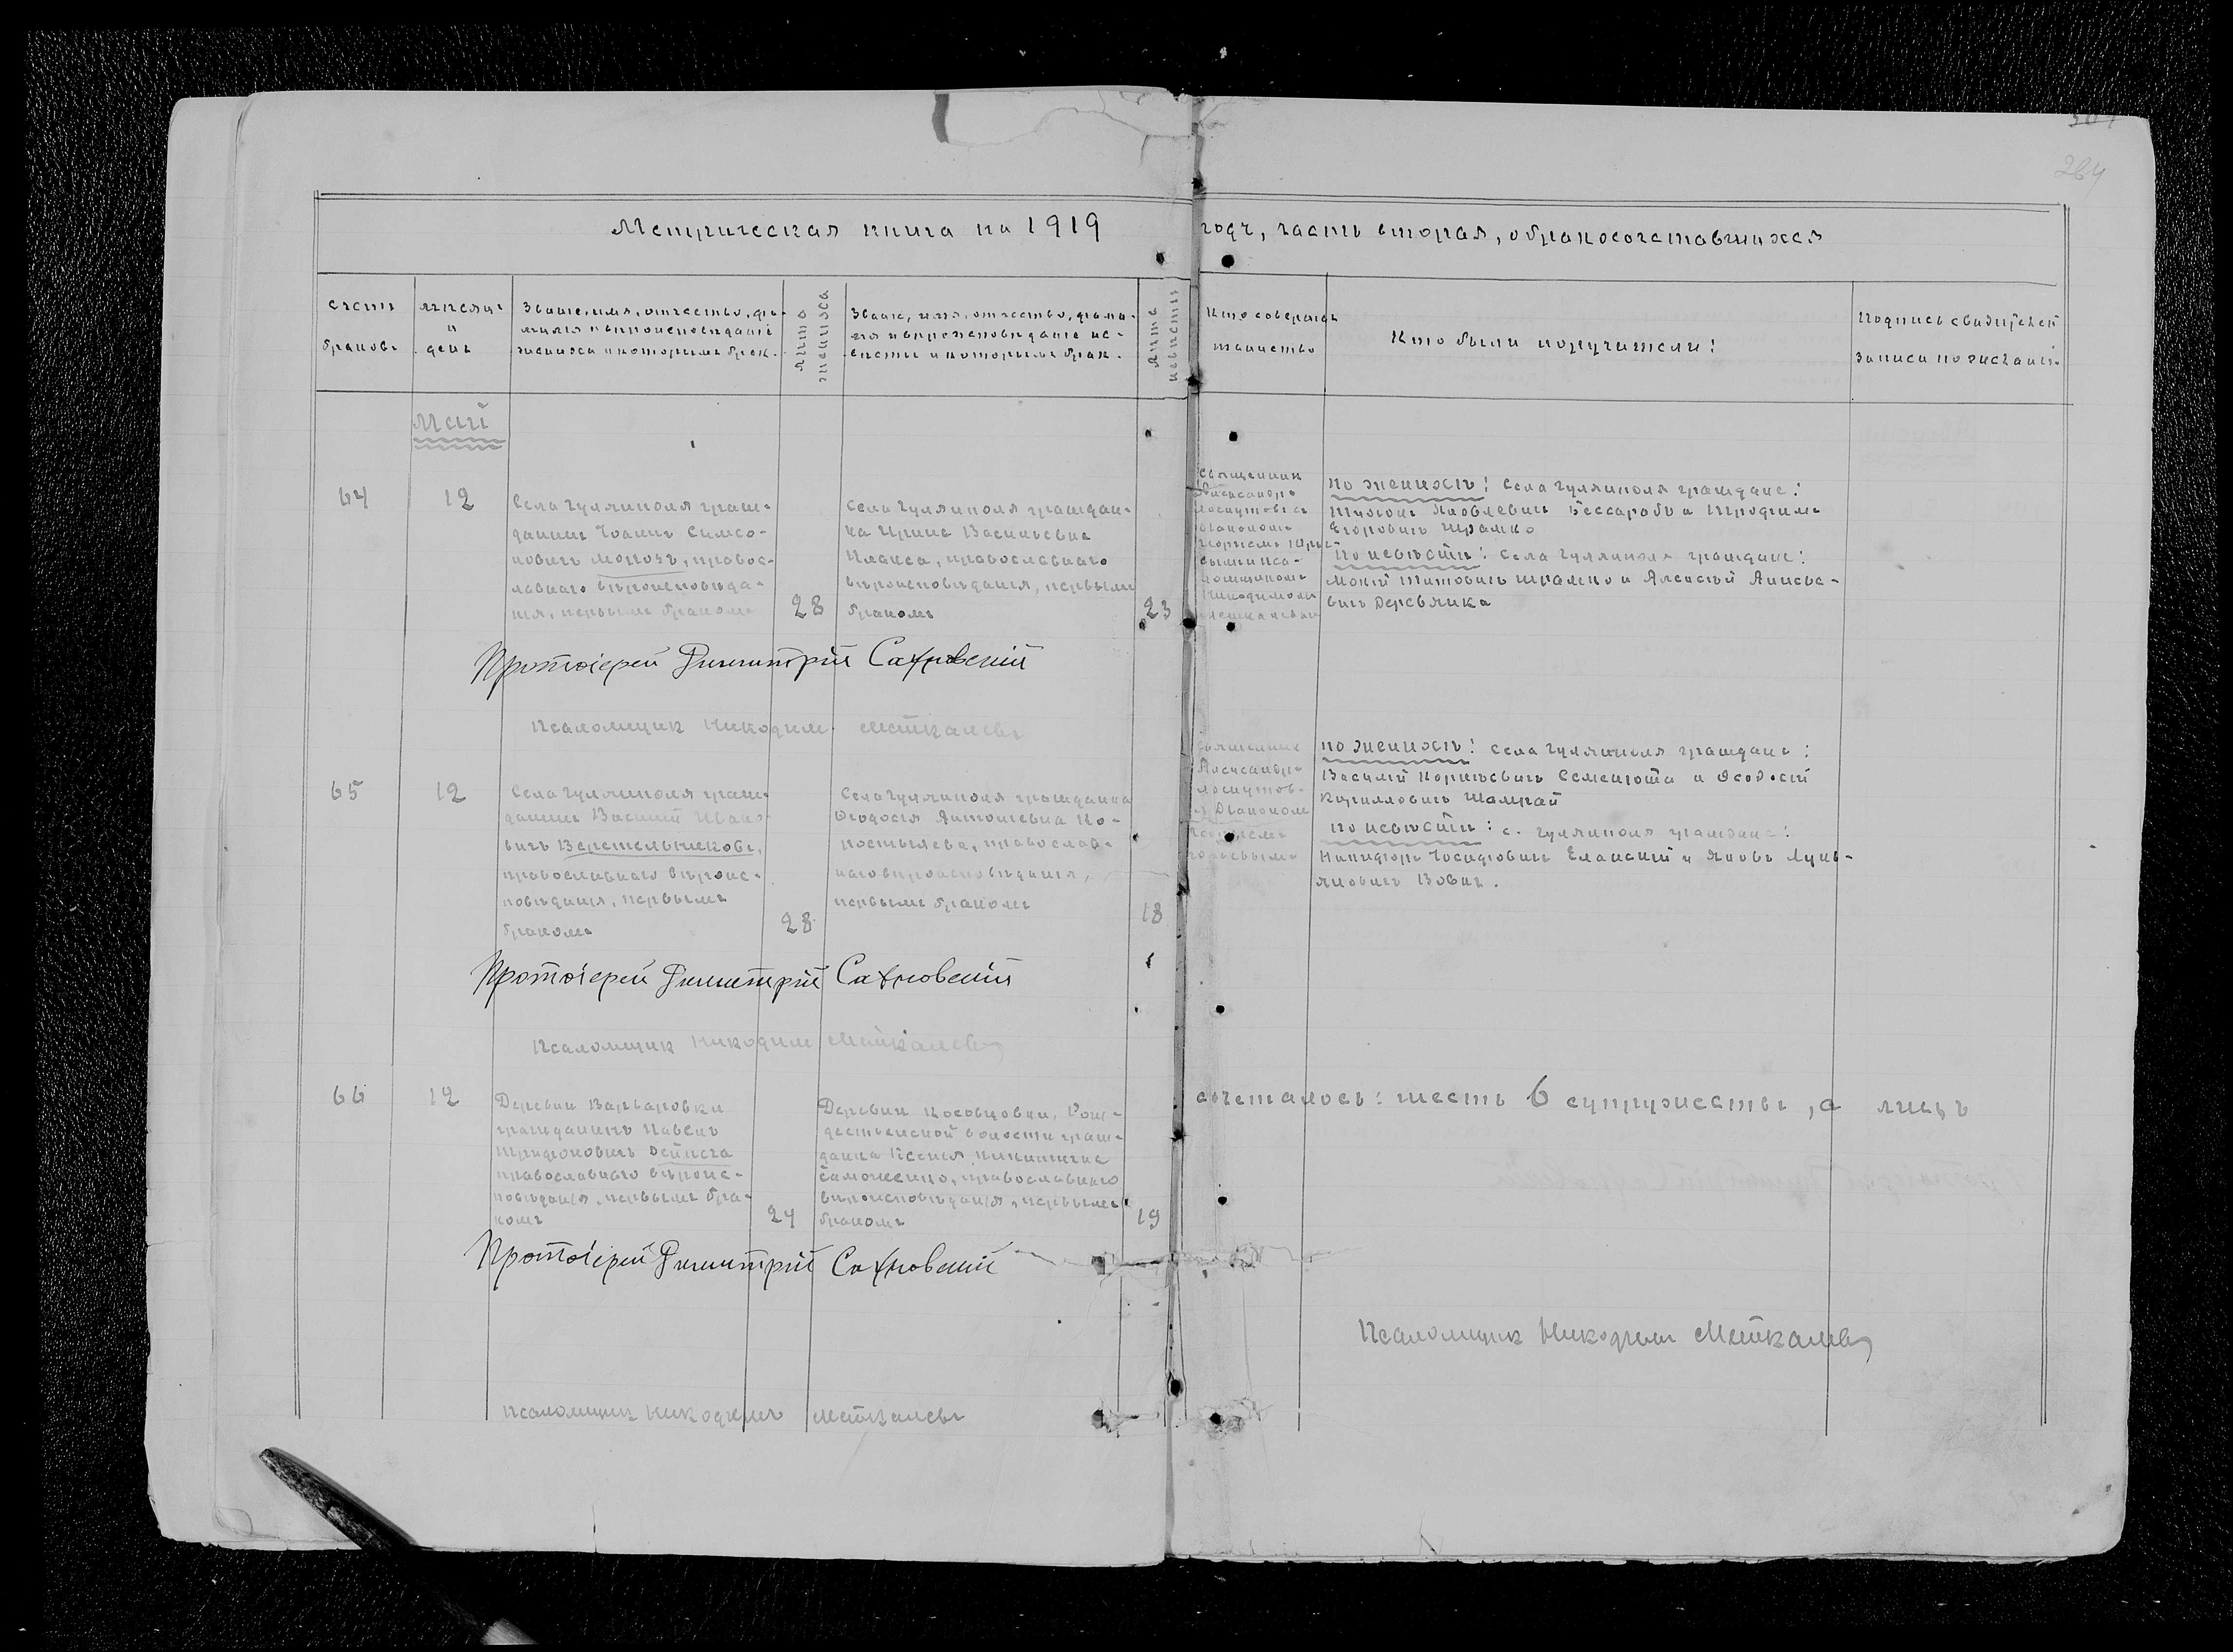 307
264
Метрическая книга на 1919
годъ, часть вторая, о бракосочетавшихся
счетъ
браковъ
мѣсяцъ
и
день
Званіе, имя, отчество, фа-
милія и вѣроисповѣданіе
жениха и которымъ брак.
лѣта
жениха
Званіе, имя, отчество, фами-
лія и вѣроисповѣданіе не-
вѣсты и которымъ брак.
лѣта
невѣсты
Кто совершалъ
таинство
Кто были поручители:
Подпись свидѣтелей
записи по желанію
Май
64
12
Села Гуляйполя граж-
данинъ Іоаннъ Симео-
новичъ Морозъ, правос-
лавнаго вѣроисповѣда-
нія, первымъ бракомъ
28
Села Гуляйполя граждан-
ка Ирина Васильевна
православнаго
вѣроисповѣданія, первымъ
бракомъ
23
Священникъ
Александръ
Діакономъ
Георгіемъ
Никодимомъ
по женихѣ: Села Гуляйполя граждане:
Яковлевичъ Бессарабъ и Трофимъ
Егоровичъ Шрамко
по невѣстѣ: Села Гуляйполя граждане:
Мокій Титовичъ Шраменко и Алексѣй Алексѣе-
вичъ Деревянка
Протоіерей Димитрій Сахновскій
Псаломщикъ Никодимъ Мейкалевъ
65
12
Села Гуляйполя граж-
данинъ Василій Ивано-
вичъ Веретельниковъ,
православнаго вѣроис-
повѣданія, первымъ
бракомъ
28
Села Гуляйполя гражданка
Феодосія Антоньевна Ко-
православ-
наго вѣроисповѣданія,
первымъ бракомъ
18
Священникъ
Александръ
Діакономъ
Георгіемъ
по женихѣ: Села Гуляйполя граждане:
Василій Корнѣевичъ Семенюта и Феодосій
Кирилловичъ Шамрай
по невѣстѣ: с. Гуляйполя граждане:
Никифоръ Іосифовичъ Еланскій и Яковъ Лукь-
яновичъ Вовкъ.
Протоіерей Димитрій Сахновскій
Псаломщикъ Никодимъ Мейкалевъ
66
12
Деревни Варваровки
гражданинъ Павелъ
Трифоновичъ Дейнега
православнаго вѣроис-
повѣданія, первымъ бра-
комъ
24
Деревни Косовцовки, Рож-
дественской волости граж-
данка Ксенія Никитична
Самойленко, православнаго
вѣроисповѣданія, первымъ
бракомъ
19
сочеталось: шесть 6 супружествъ, а лицъ
Протоіерей Димитрій Сахновскій
Псаломщикъ Никодимъ Мейкалевъ
Псаломщикъ Никодимъ Мейкалевъ